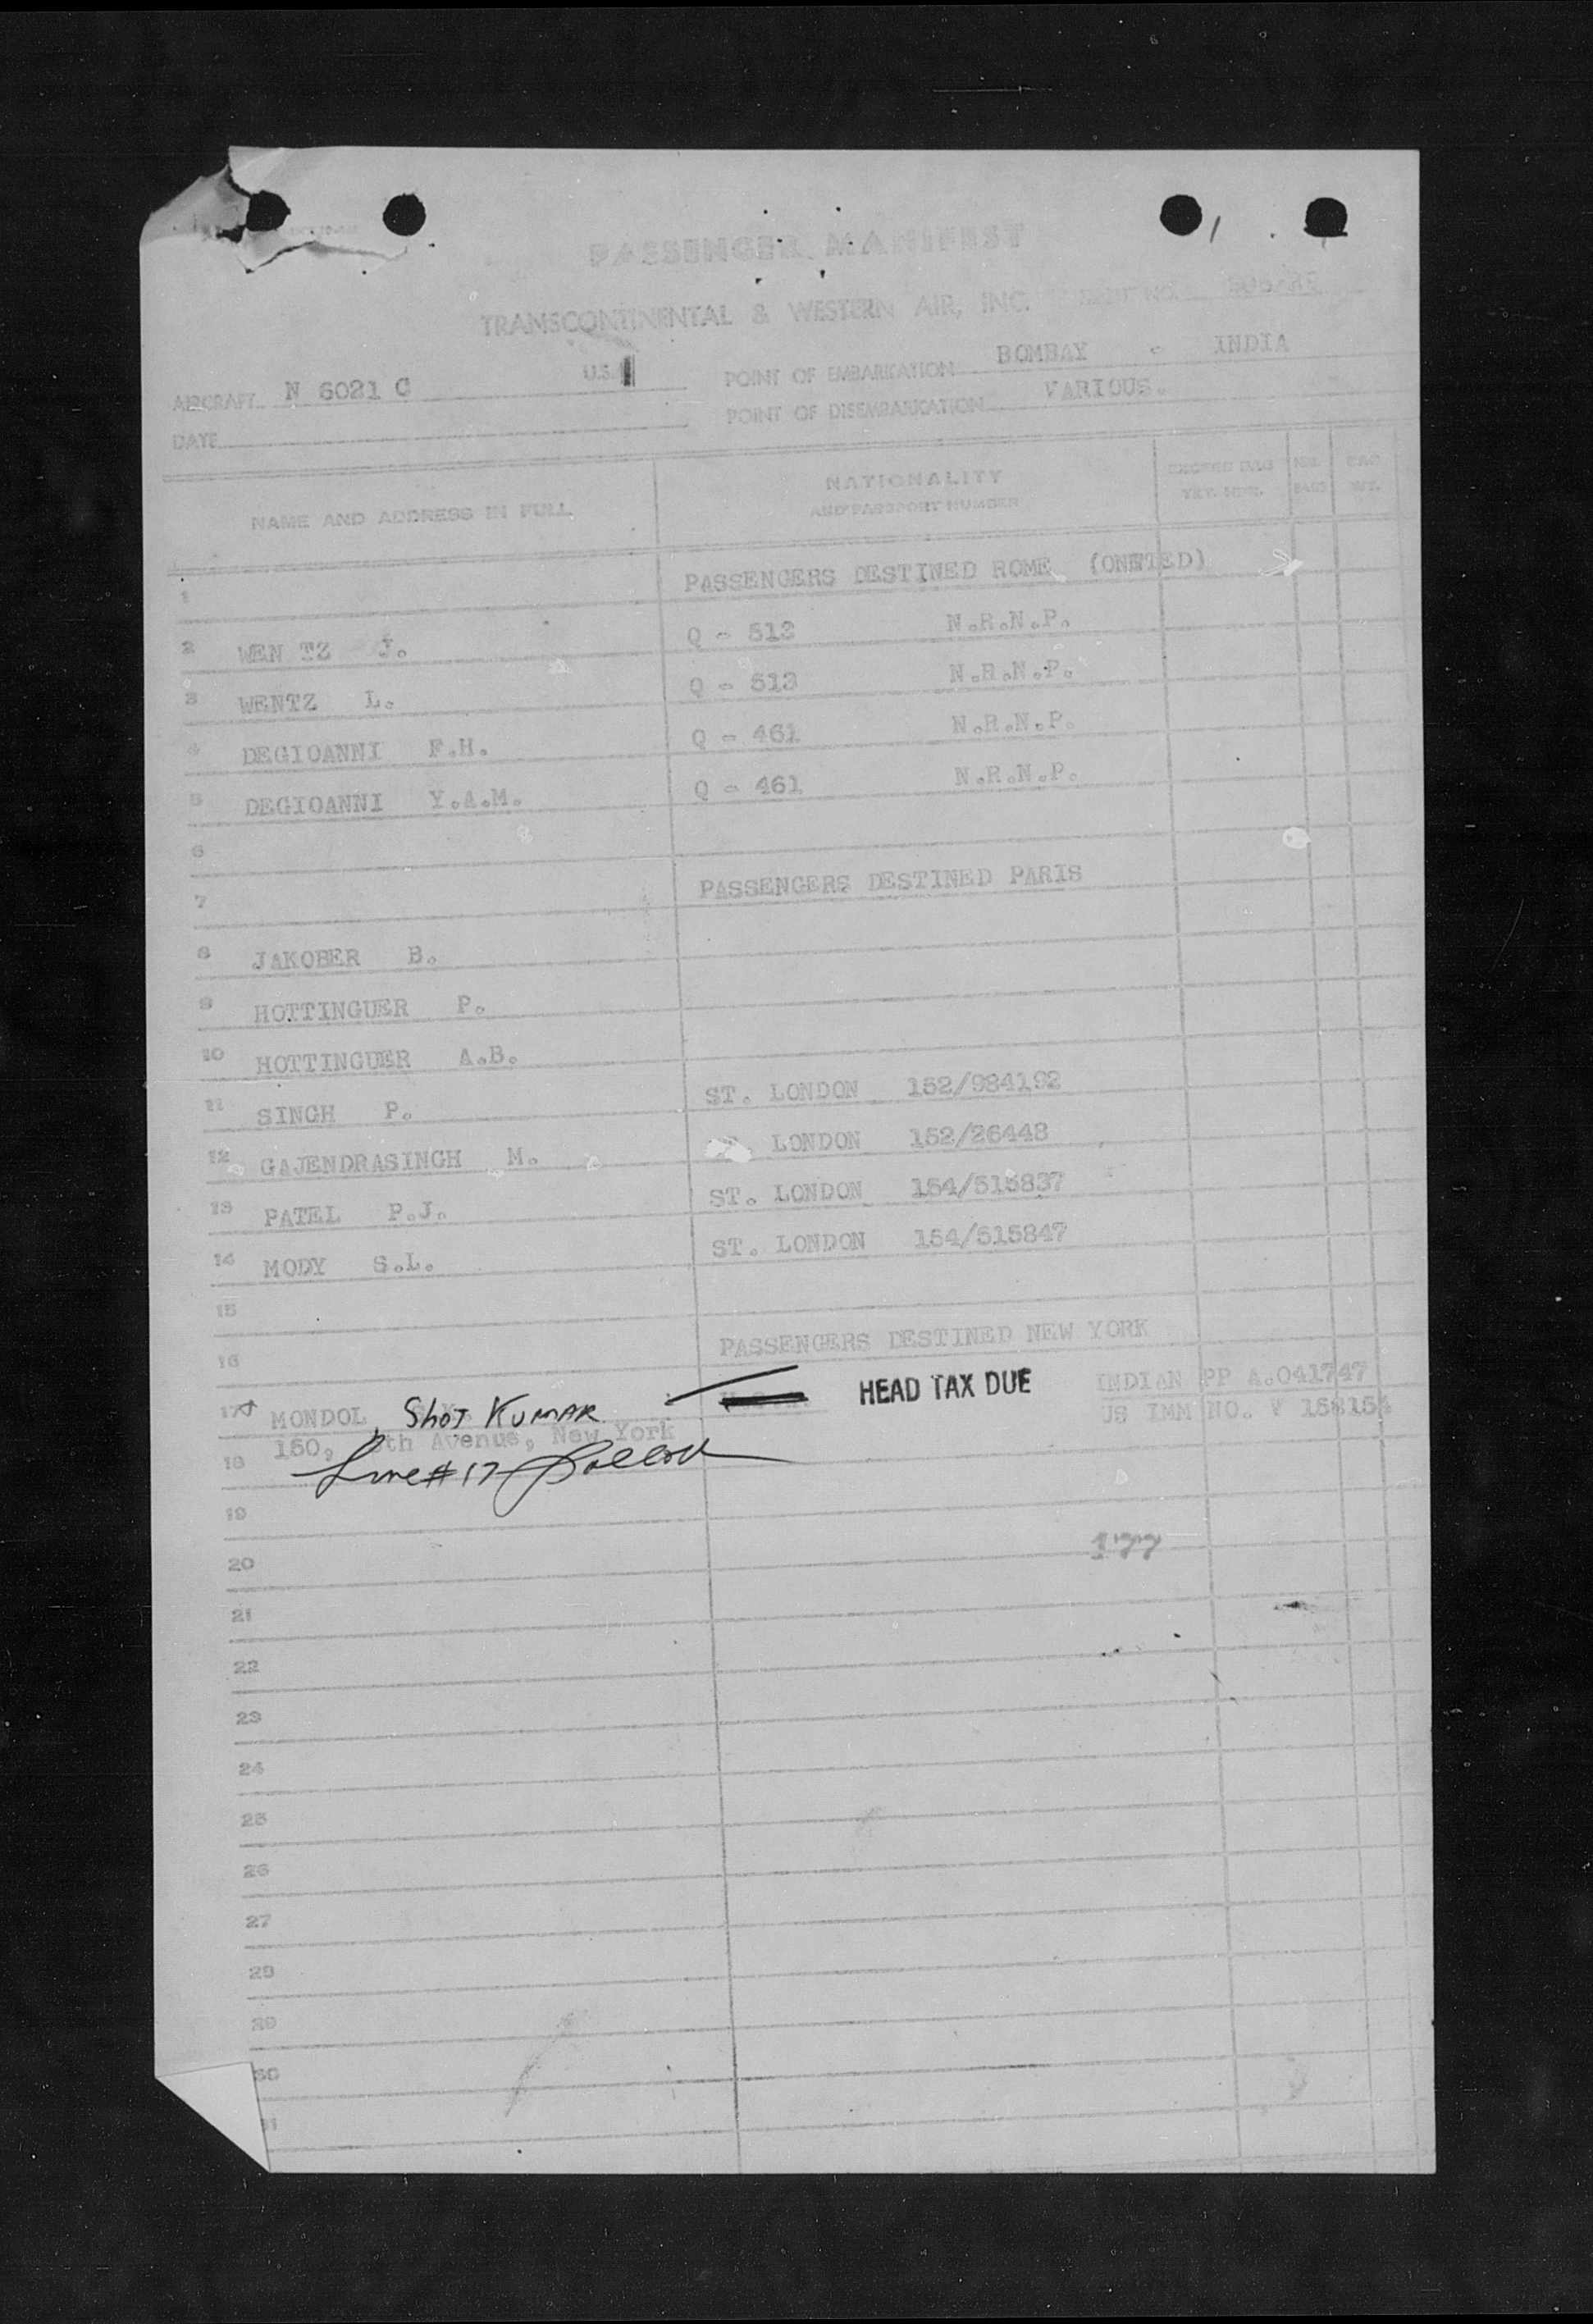 PASSENGER MANIFEST
TRANSCONTINENTAL & WESTERN AIR, INC.
AIRCRAFT N 6021 C U.S. POINT OF EMBARKATION BOMBAY - INDIA
DATE POINT OF DISEMBARKATION VARIOUS.
NAME AND ADDRESS IN FULL NATIONALITY AND PASSPORT NUMBER
1 PASSENGERS DESTINED ROME
2 WEN TZ J. Q - 513 N.R.N.P.
3 WENTZ L. Q - 513 N.R.N.P.
4 DEGIOANNI F.H. Q - 461 N.R.N.P.
5 DEGIOANNI Y.A.M. Q - 461 N.R.N.P.
6
7 PASSENGERS DESTINED PARIS
8 JAKOBER B.
9 HOTTINGUER P.
10 HOTTINGUER A.B.
11 SINGH P. ST. LONDON 152/984192
12 GAJENDRASINGH M. LONDON 152/26448
13 PATEL P.J. ST. LONDON 154/515837
14 MODY S.L. ST. LONDON 154/515847
15
16 PASSENGERS DESTINED NEW YORK
17 MONDOL, Shot KUMAR HEAD TAX DUE INDIAN PP A.041747
150, Avenue, New York US IMM NO. V 158154
18 Line #17
19
20 177
21
22
23
24
25
26
27
28
29
30
31